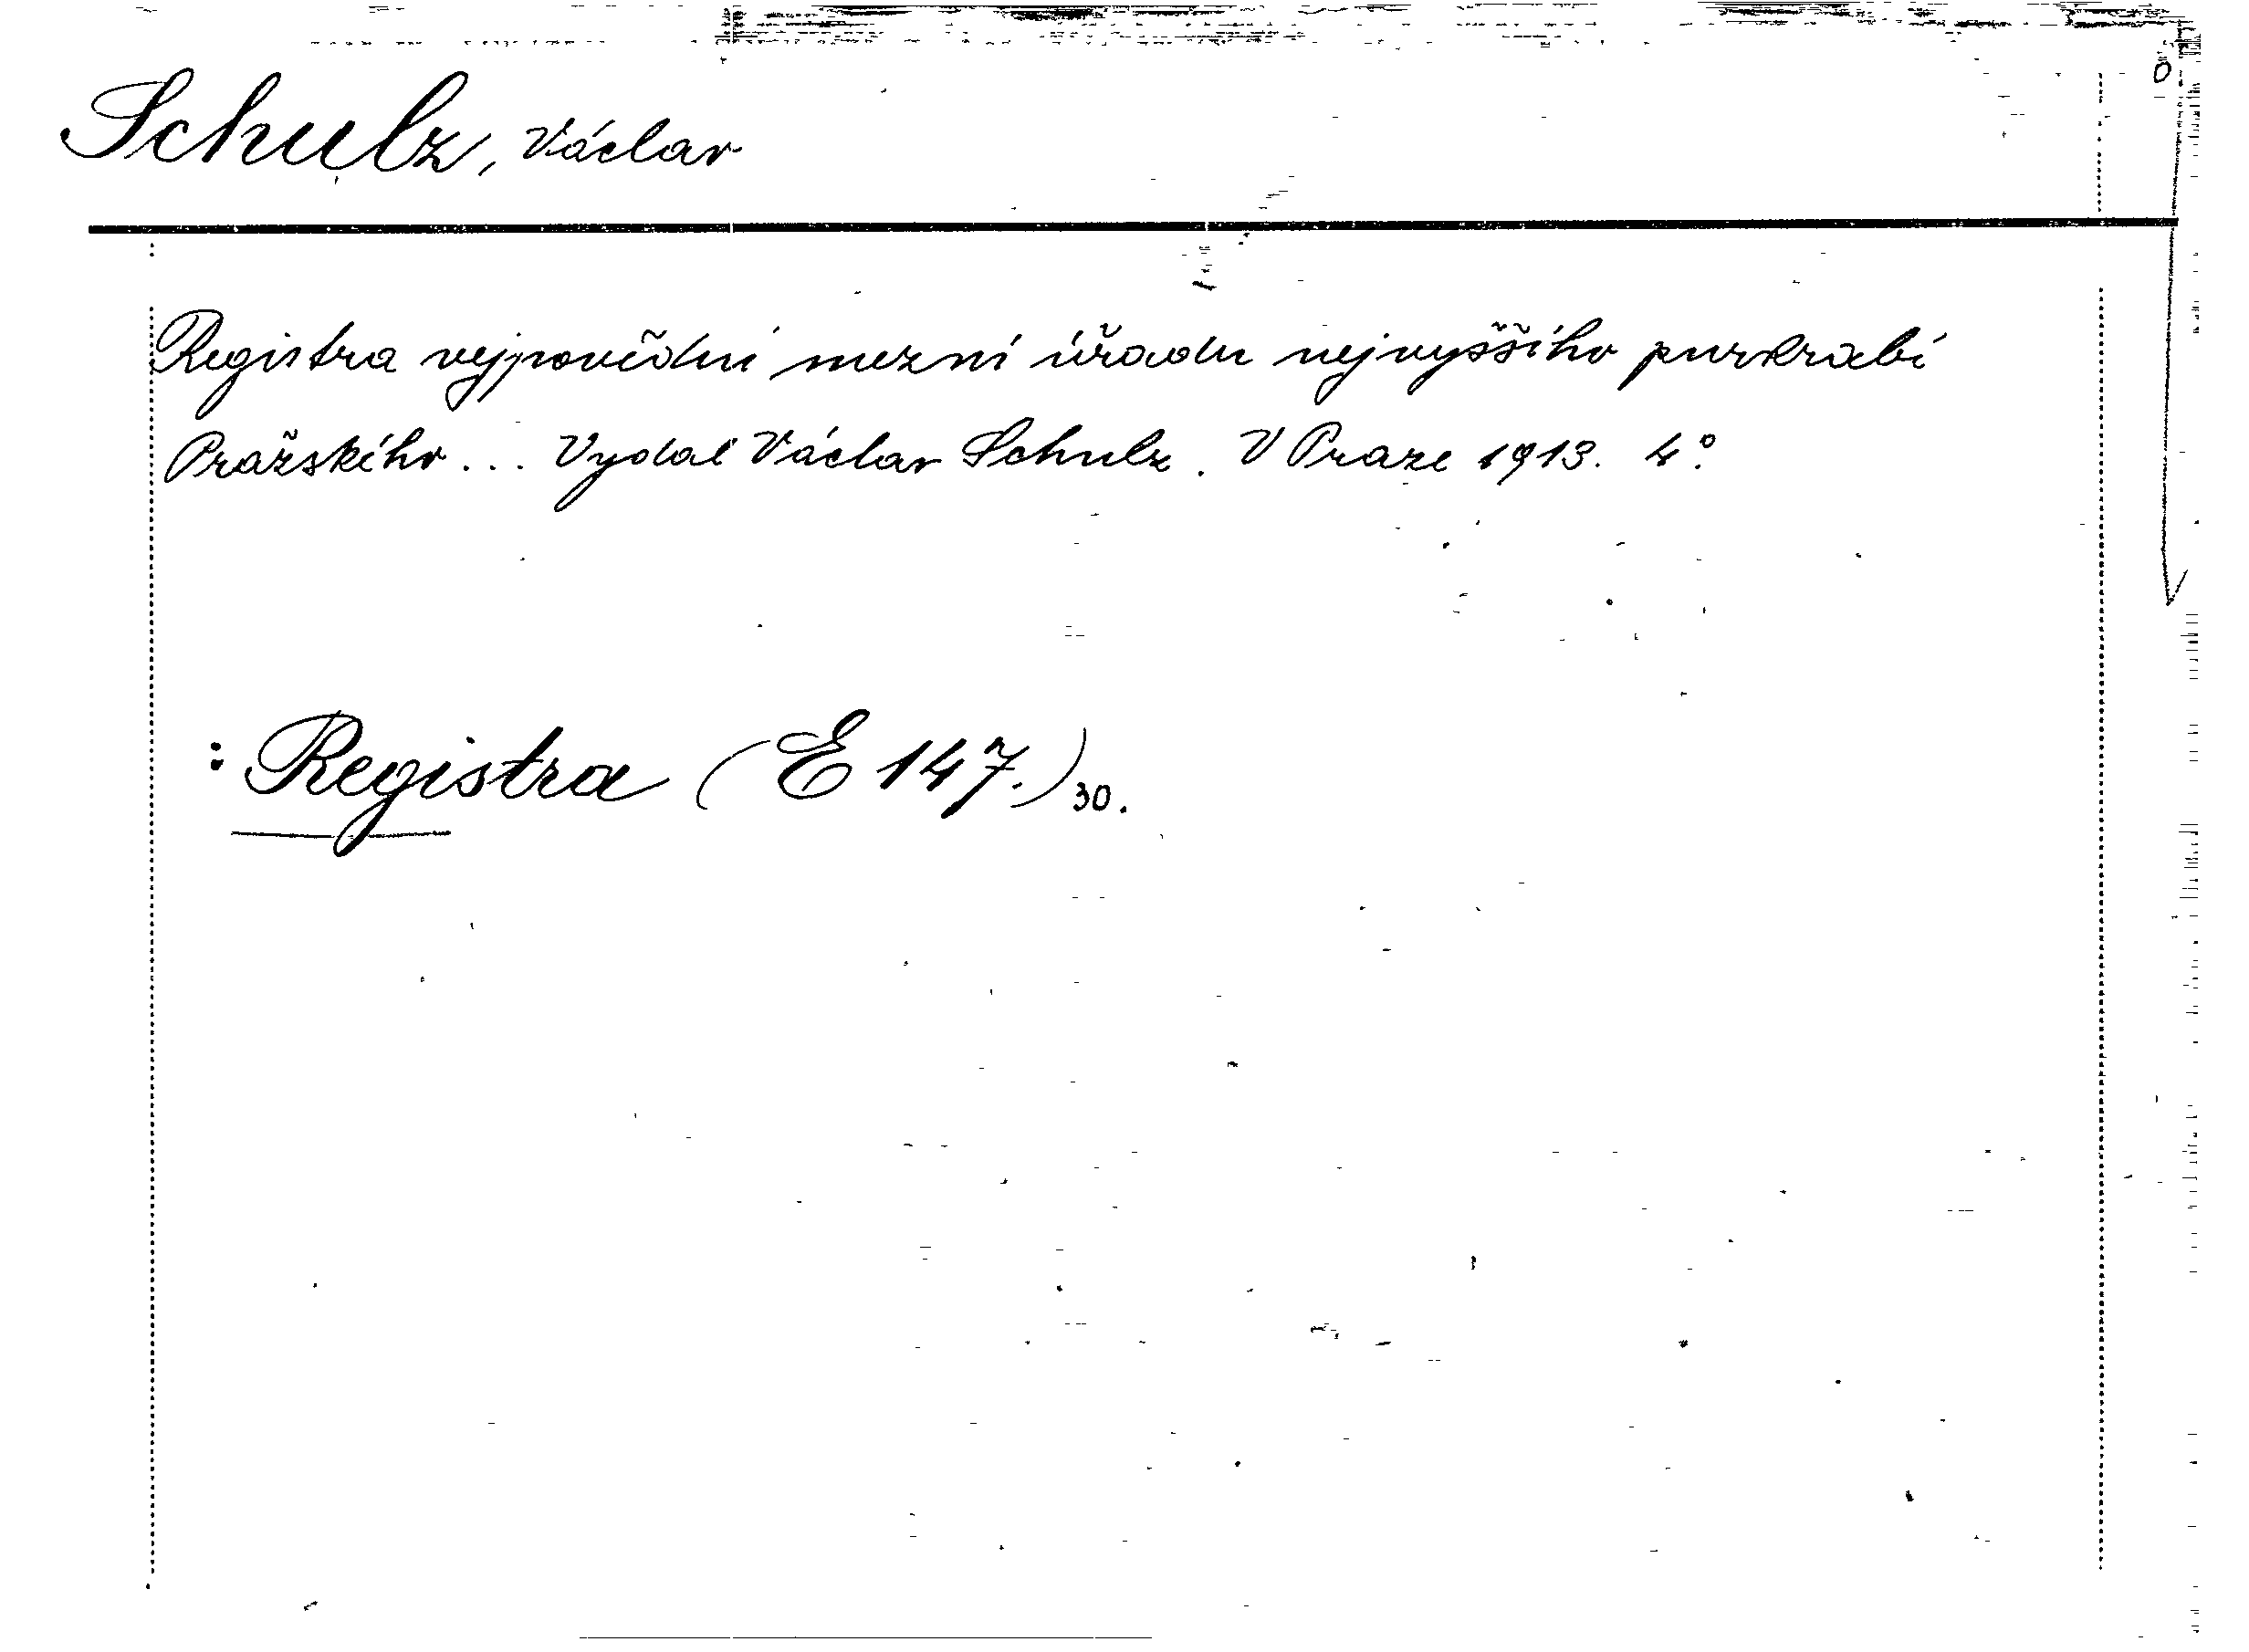 Schulz, Václav
Registra vejpovědní mezní úřadu nejvyššího purkrabí
Pražského... Vydal Václav Schulz. V Praze 1913. 4°.
: Registra (E 147.) 30.